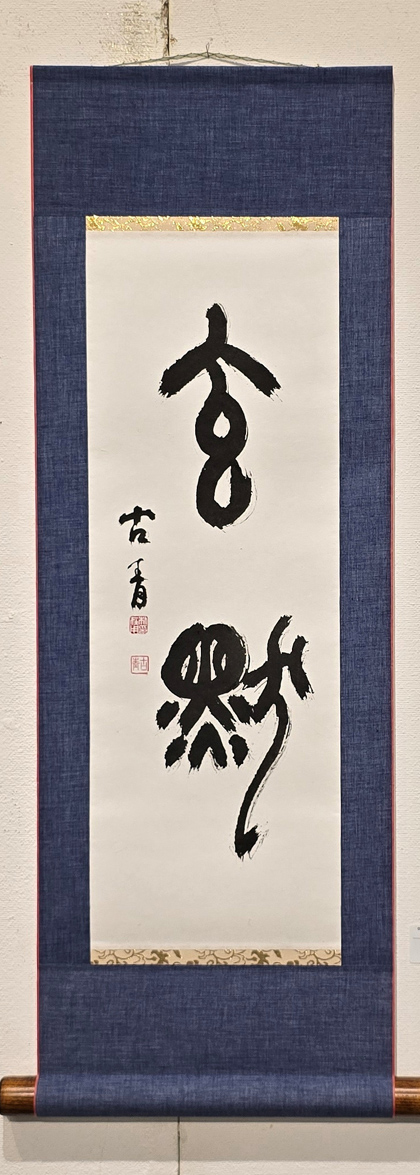 玄默
古青